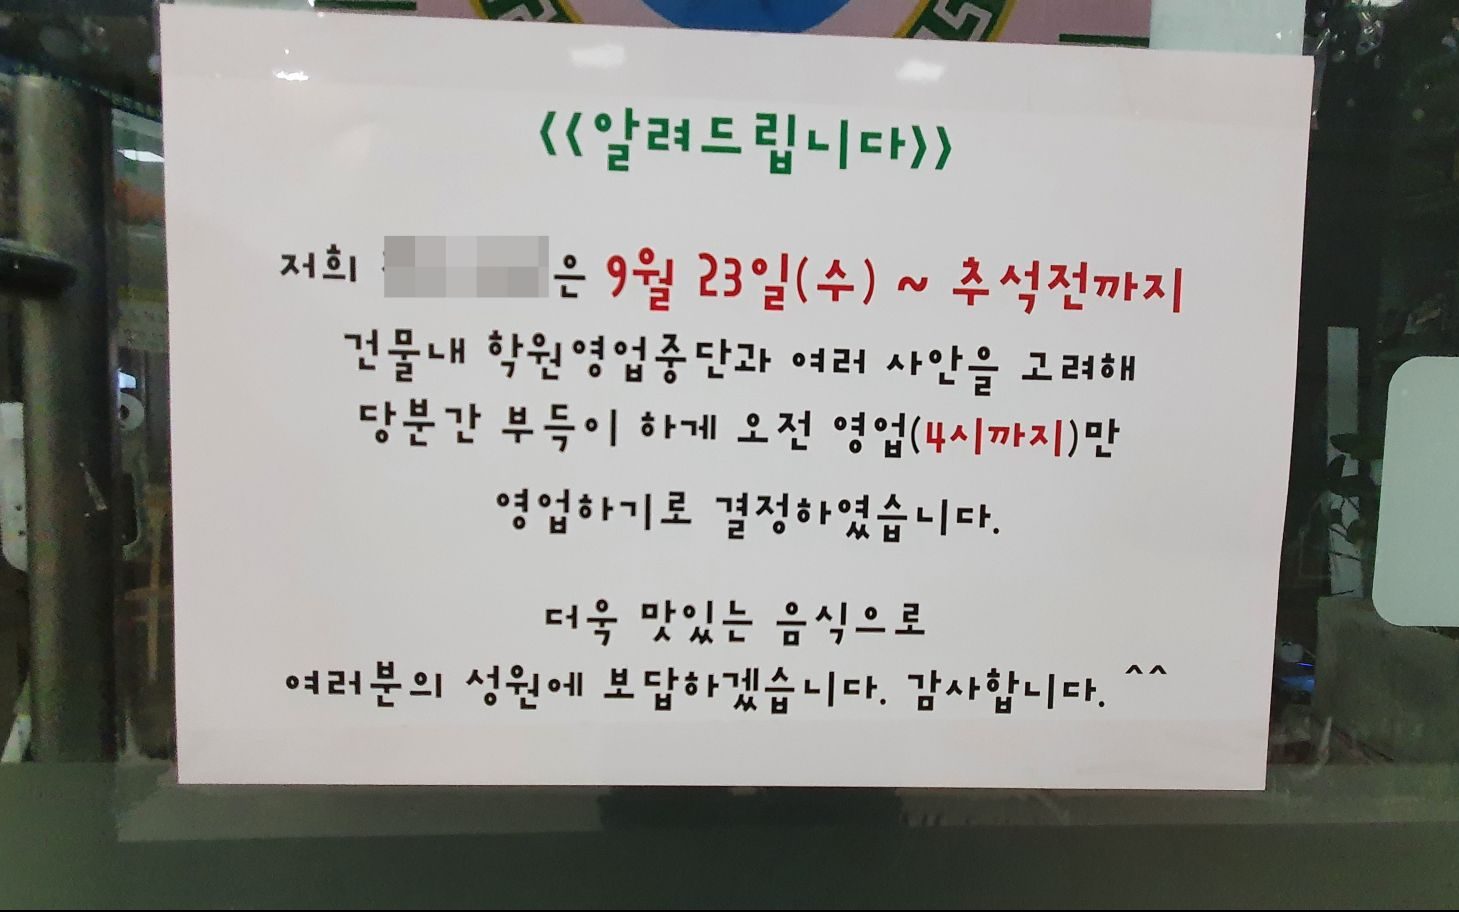 <<알려드립니다>>
저희 은 9월 23일(수) ~ 추석전까지
건물내 학원영업중단과 여러 사안을 고려해
당분간 부득이 하게 오전 영업(4시까지)만
영업하기로 결정하였습니다.
더욱 맛있는 음식으로
여러분의 성원에 보답하겠습니다. 감사합니다. ^^